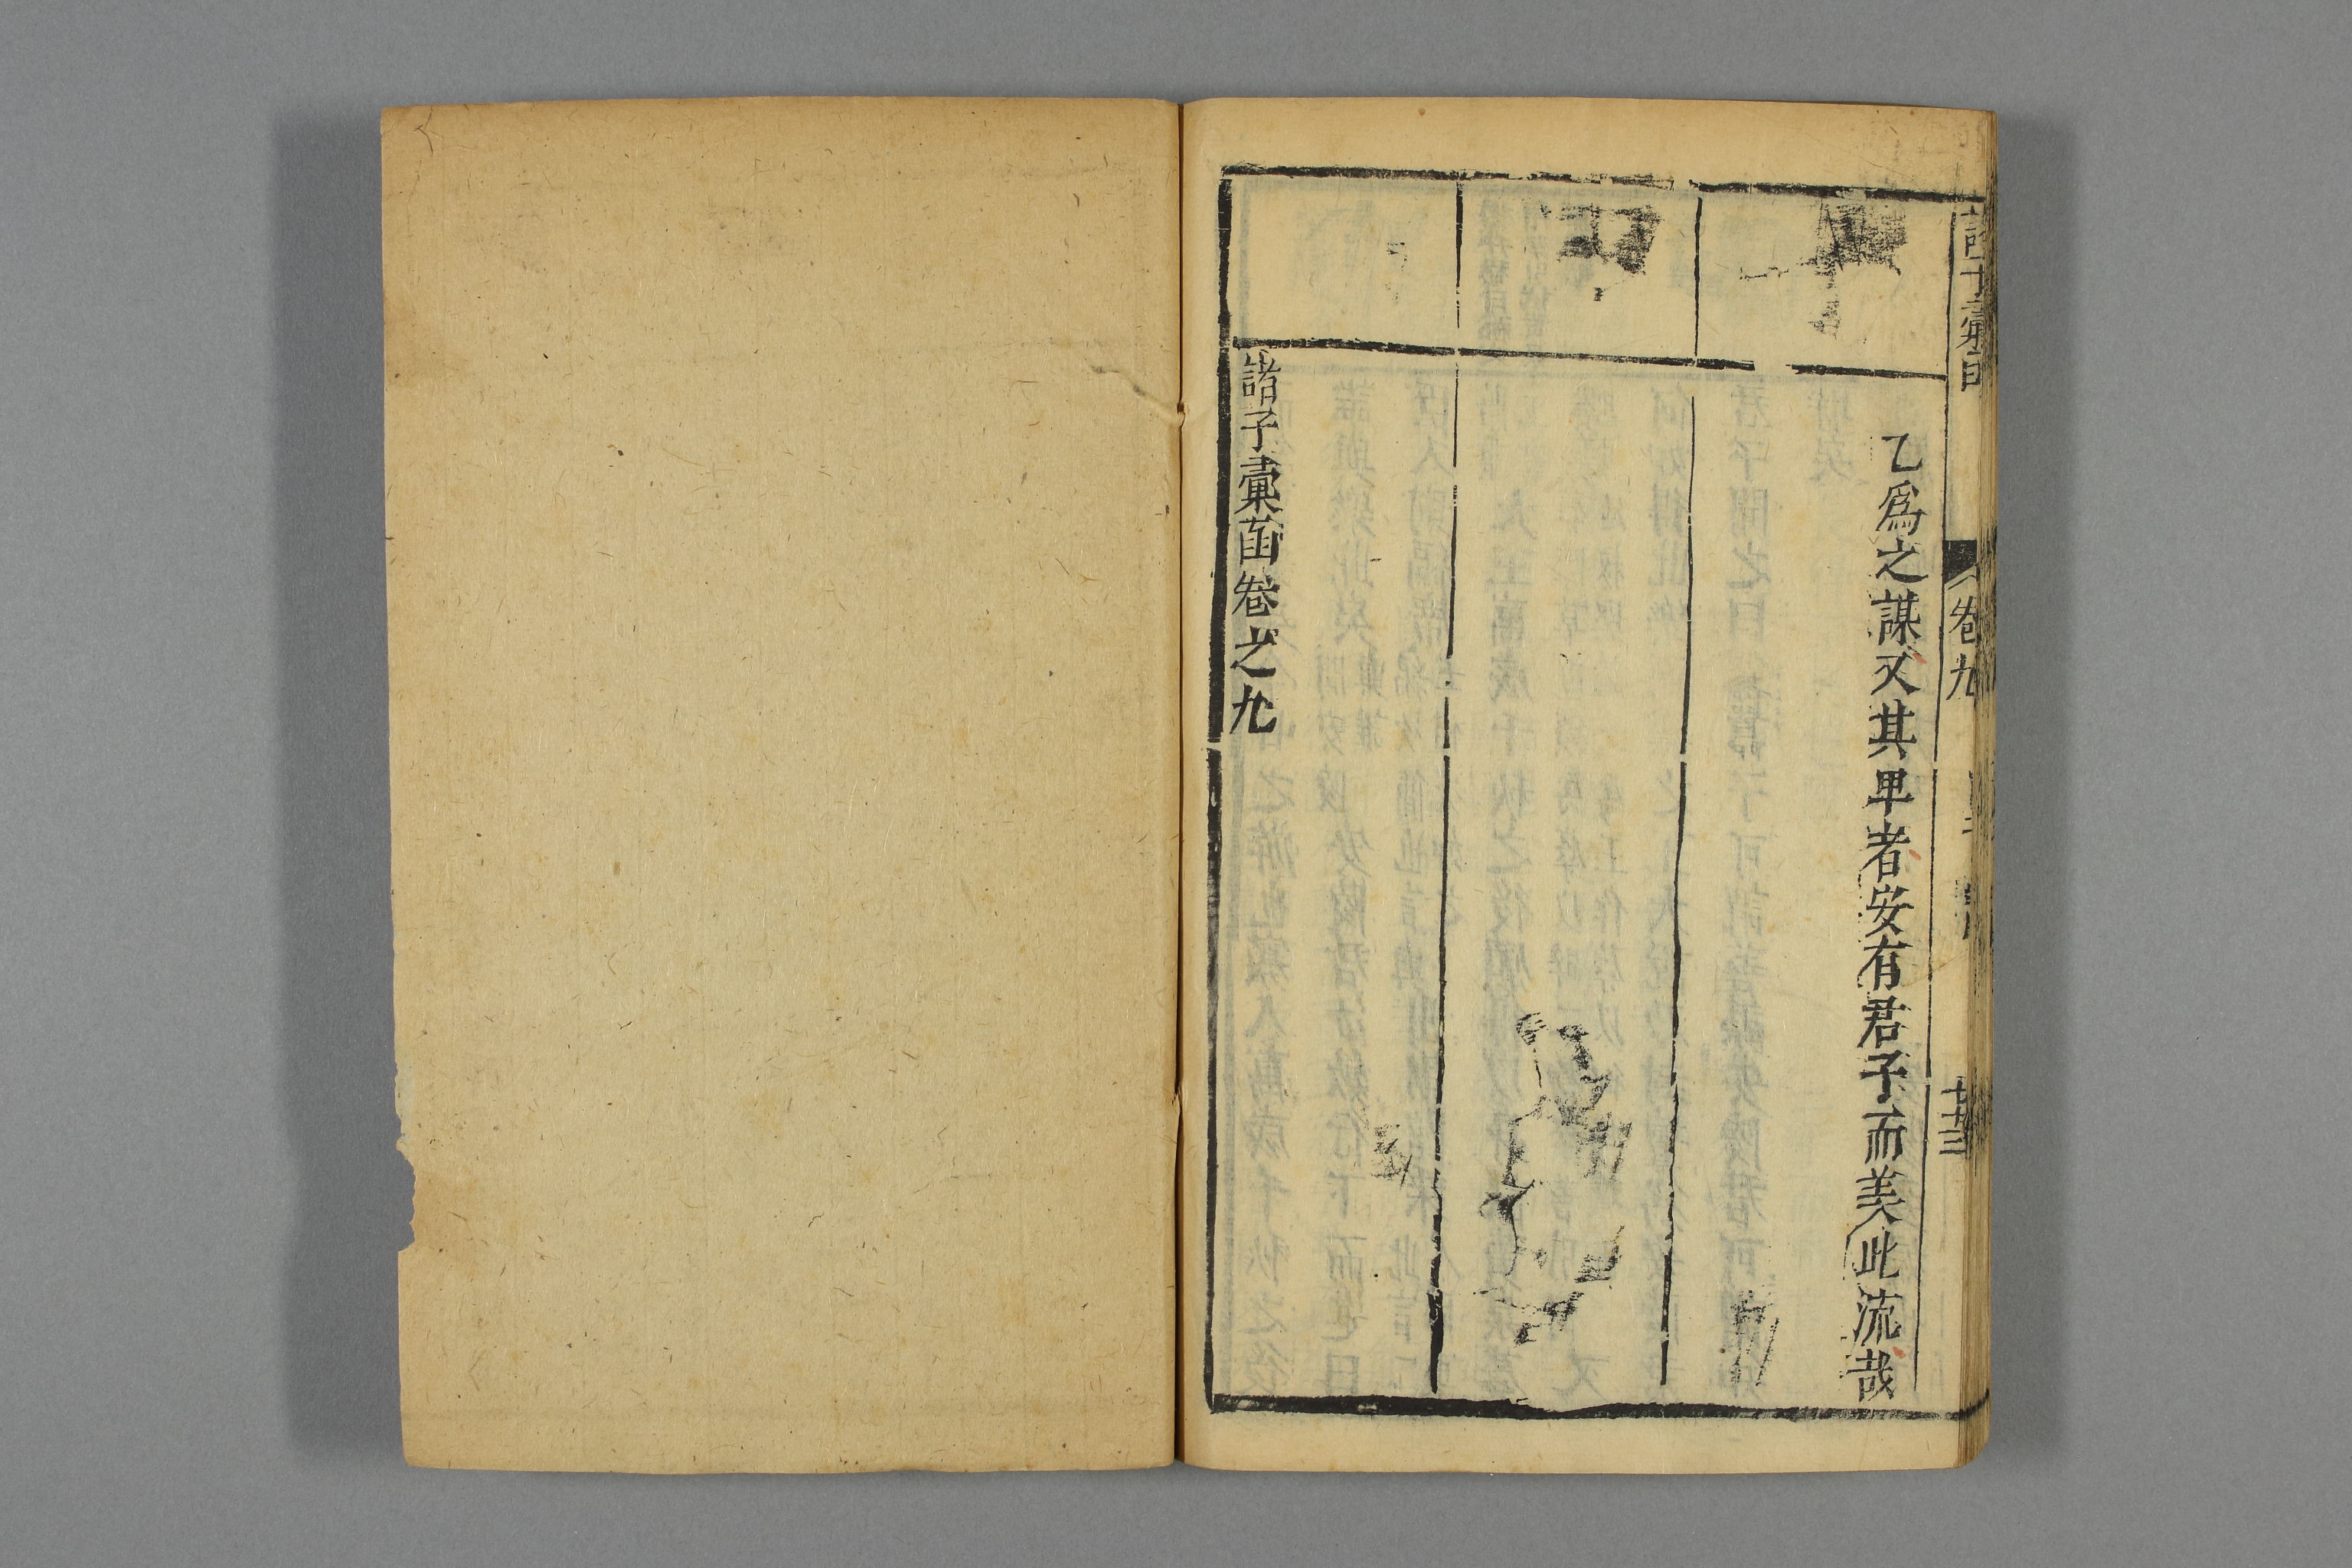 諸子彙函
卷九
七十三
乙爲之謀又其卑者安有君子而美此流哉
諸子彙函卷之九